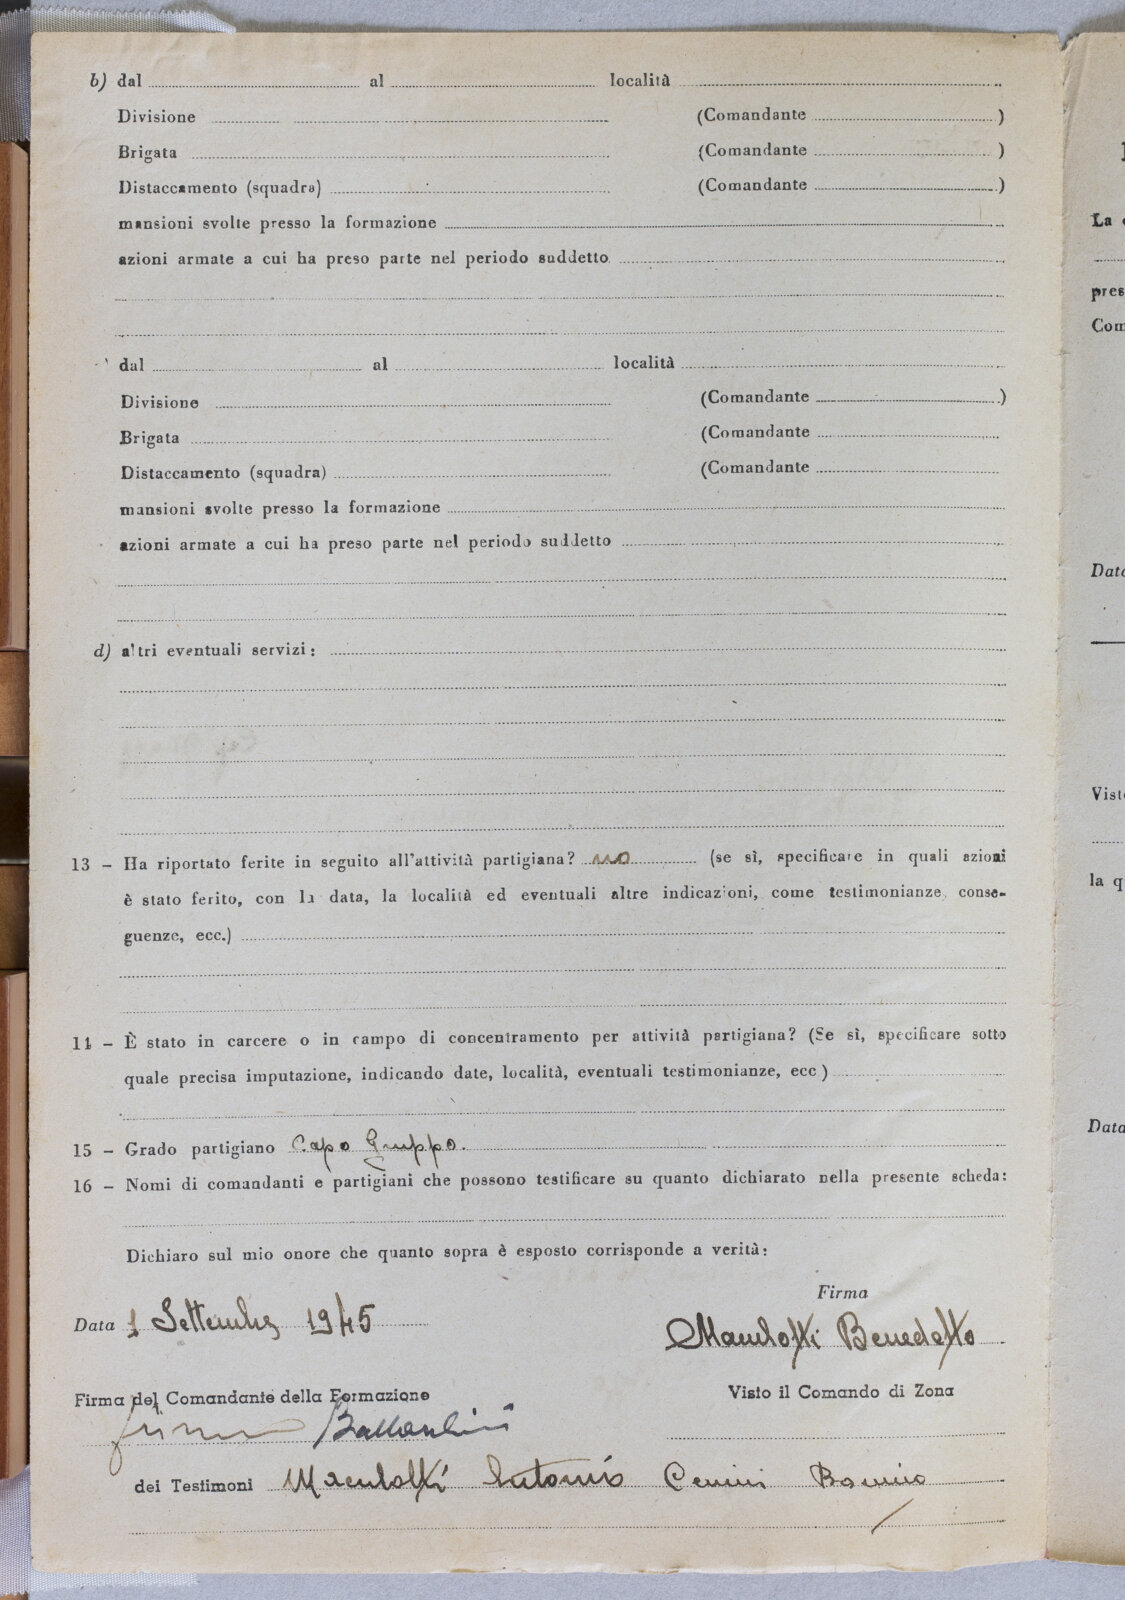 b) dal al località
Divisione (Comandante )
Brigata (Comandante )
Distaccamento (squadra) (Comandante )
mansioni svolte presso la formazione
azioni armate a cui ha preso parte nel periodo suddetto
dal al località
Divisione (Comandante )
Brigata (Comandante
Distaccamento (squadra) (Comandante
mansioni svolte presso la formazione
azioni armate a cui ha preso parte nel periodo suddetto
d) altri eventuali servizi:
13 - Ha riportato ferite in seguito all'attività partigiana? no (se sì, specificare in quali azioni
è stato ferito, con la data, la località ed eventuali altre indicazioni, come testimonianze, conse-
guenze, ecc.)
14 - È stato in carcere o in campo di concentramento per attività partigiana? (Se sì, specificare sotto
quale precisa imputazione, indicando date, località, eventuali testimonianze, ecc)
15 - Grado partigiano Capo Gruppo.
16 - Nomi di comandanti e partigiani che possono testificare su quanto dichiarato nella presente scheda:
Dichiaro sul mio onore che quanto sopra è esposto corrisponde a verità:
Firma
Data 1 Settembre 1945
Benedetto
Firma del Comandante della Formazione
Visto il Comando di Zona
dei Testimoni Antonio
La
pres
Com
Data
Visto
la q
Data